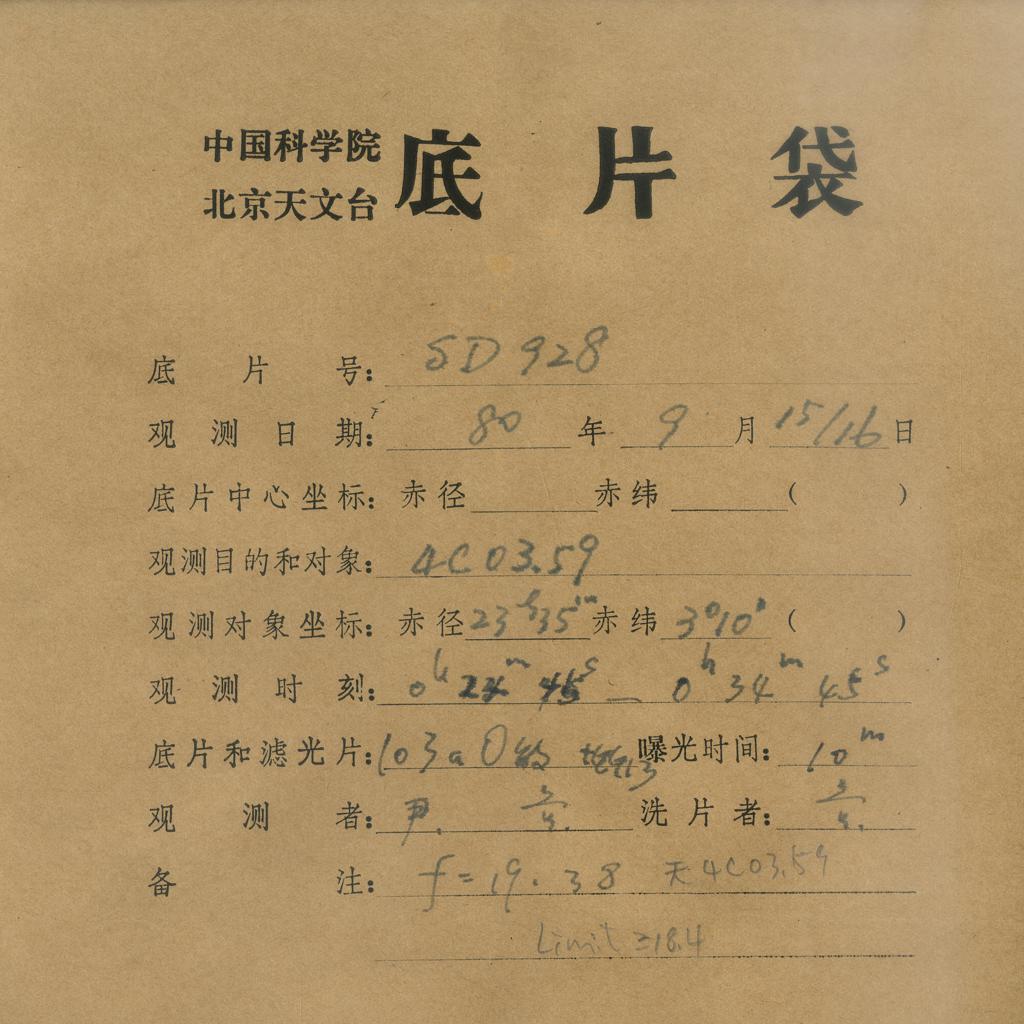 中国科学院
北京天文台 底片袋
底片号: SD 928
观测日期: 80 年 9 月 15/16 日
底片中心坐标: 赤径 赤纬 ( )
观测目的和对象: 4C03.59
观测对象坐标: 赤径 23h35m 赤纬 3°10' ( )
观测时刻: 0h 24m 45s — 0h 34m 45s
底片和滤光片: 103aO 曝光时间: 10m
观测者: 尹. 洗片者:
备注: f=19.38 天4C03.59
Limit ≥18.4